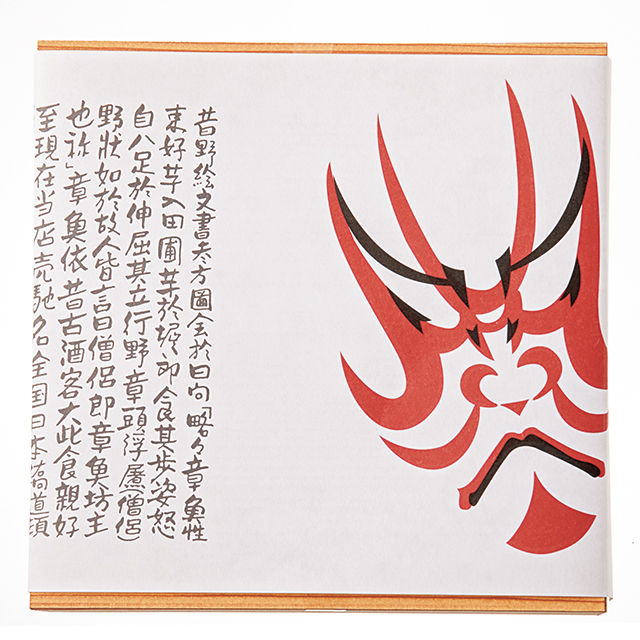 昔野絵文書方圖会於日向「略々章魚性
束好芋入田圃芋於堀即食其歩姿怒
自八足於伸屈其立行野章頭浮(僧侶)
野狀如於故人皆言曰僧侶即章魚坊主
也祢」章魚依昔古酒客大此食親好
至現在当店売馳名全国日本橋道頓